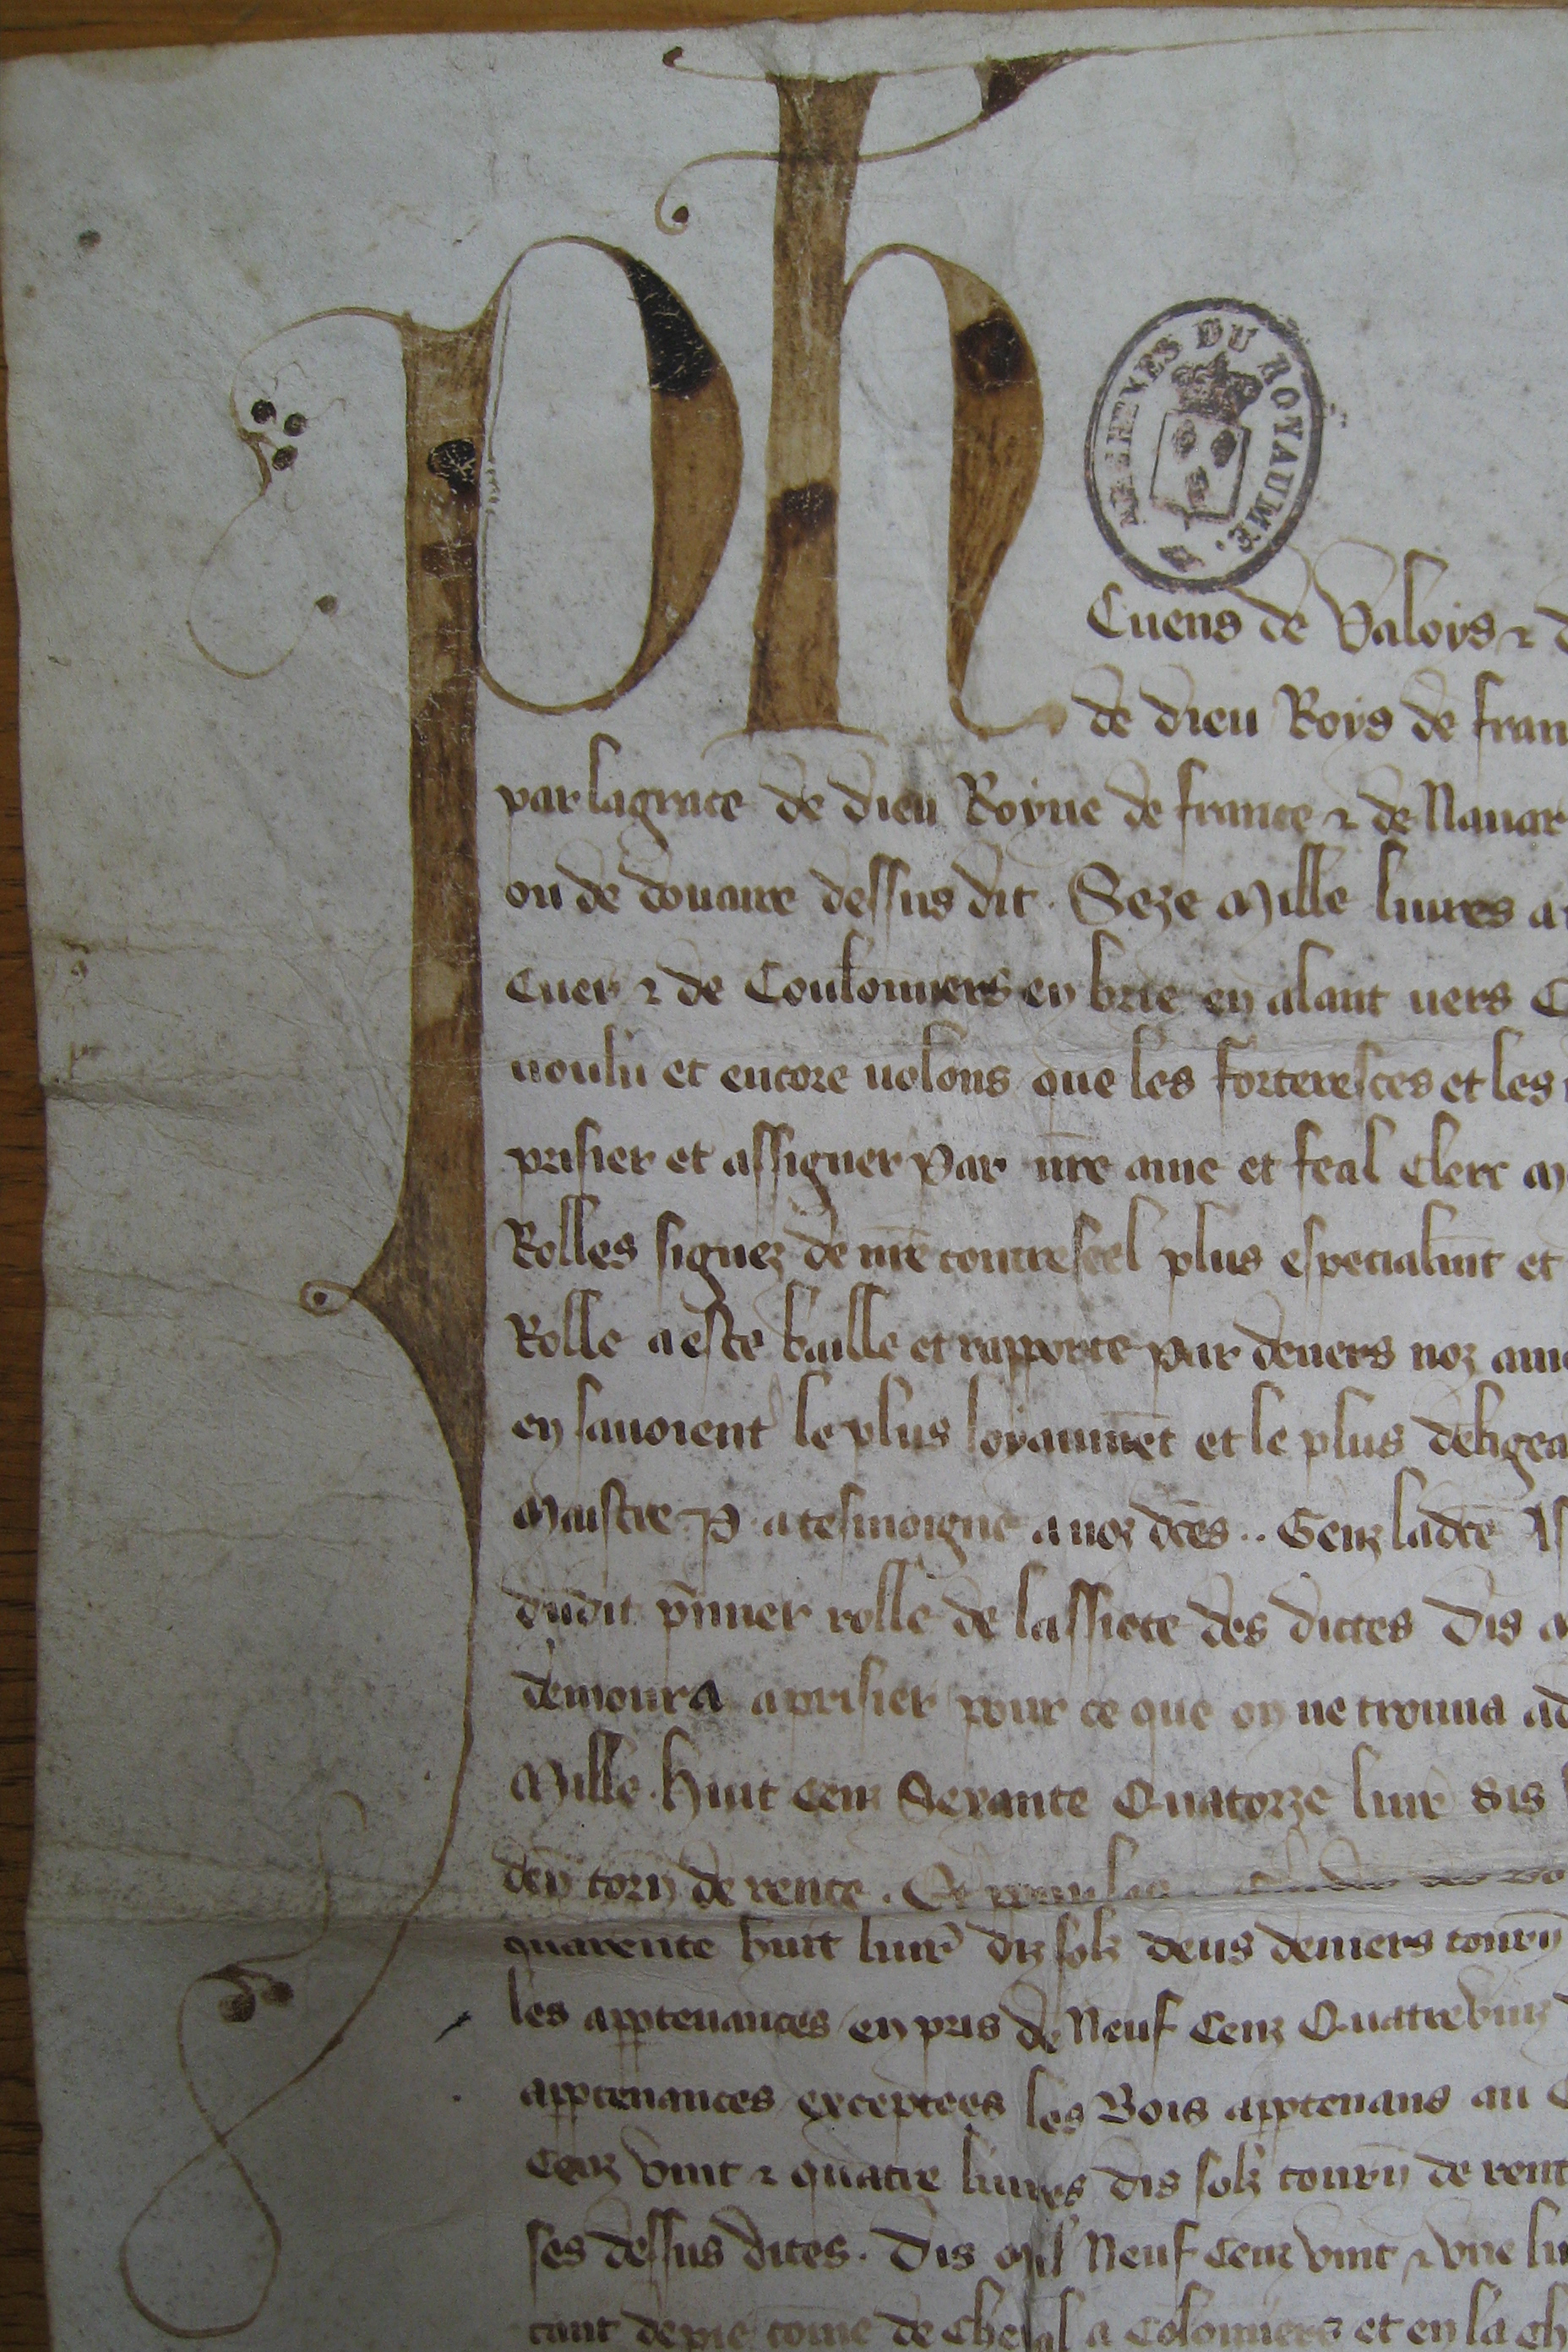 Ph
ARCHIVES DU ROYAUME.
Cuens de Valoys ⁊ d
de dieu Roys de fran
par la grace de dieu Royne de france ⁊ de Nauar
ou de douaire dessus dit. Seze Mille liures a
Cuer ⁊ de Coulommers en brie en alant uers C
uoulu et encore uolons que les forteresces et les
prisier et assigner par nr̄e ame et feal Clerc m
Rolles signez de nr̄e contreseel plus especialmt̄ et
Rolle a este baille et rapporte par deuers noz ame
en sauoient le plus loyaumēt et le plus deligea
Maistre P. a tesmoigne a noz dc̄es .. Genz ladc̄e
dudit p̄mier rolle de lassiete des dictes Dis m
demoura a prisier pour ce que on ne trouua ad
Mille. huit cenz Sexante Quatorze liur̄ dis
den̄ torn̄ de rente. Et pour les
quarente huit liur̄ diz solz deus deniers tourn̄
les apptenances en pris de Neuf Cenz Quatrevinz
apptenances exceptees les Bois apptenans au C
Cenz vint ⁊ quatre liures dis solz tourn̄ de rent
ses dessus dites. Dis mil Neuf Cenz vint ⁊ vne li
tant de pie com̄e de cheual a Colommers et en la ch